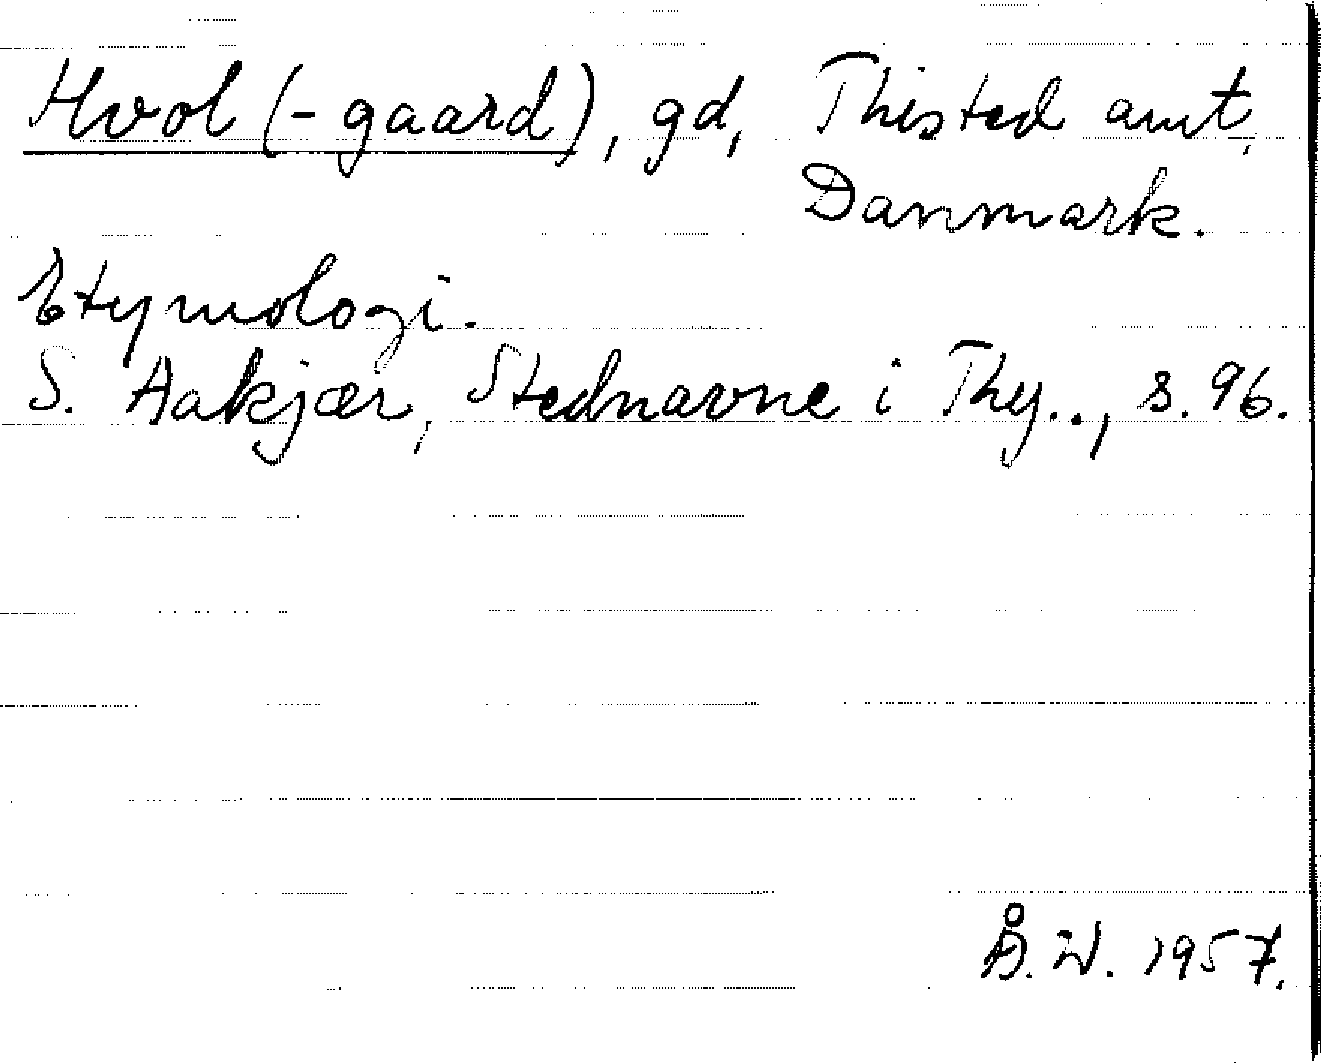 Hvol (-gaard), gd, Thisted amt,
Danmark.
Etymologi.
S. Aakjær, Stednavne i Thy.., s. 96.
Å. W. 1957.